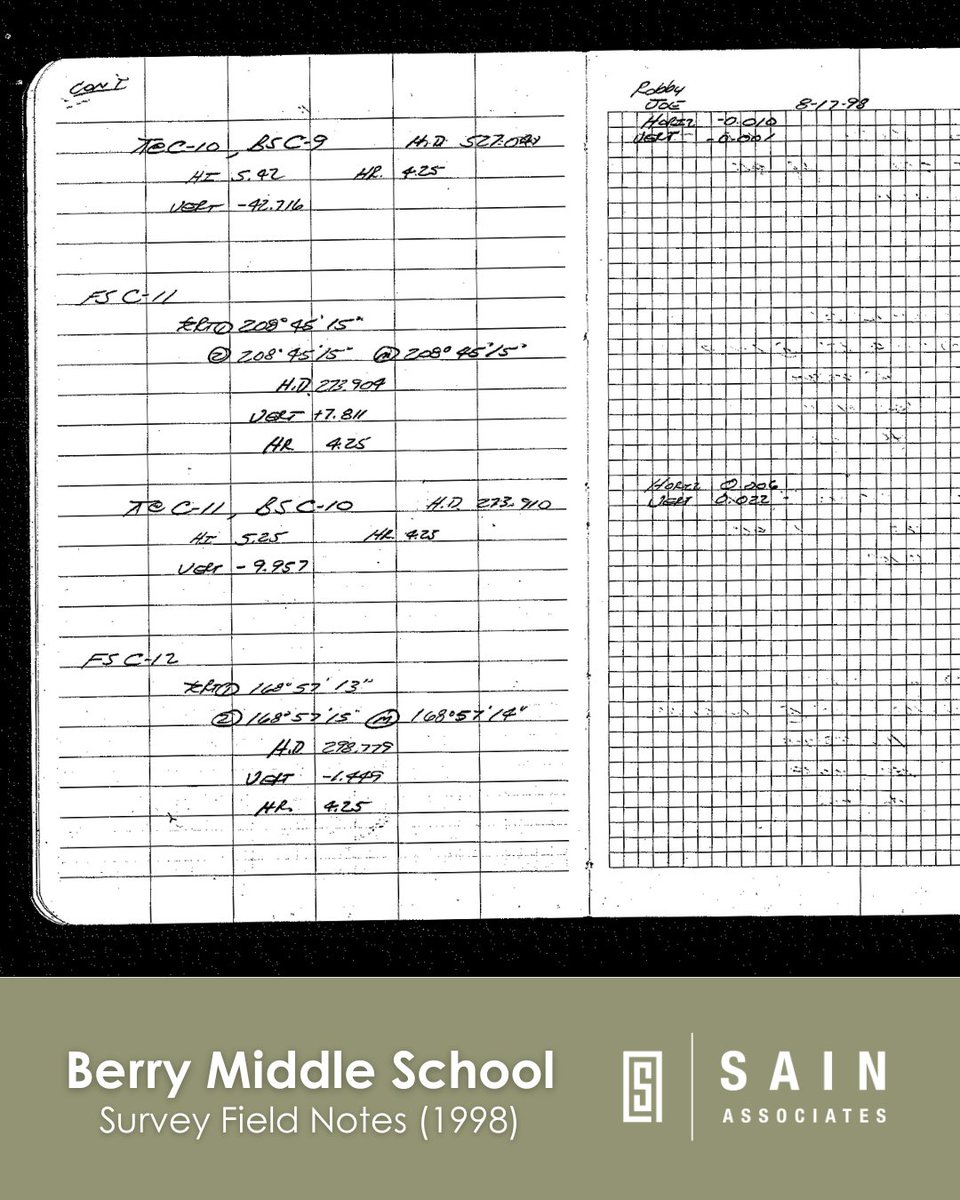 CONT
⊼@ C-10, BS C-9 H.D 527.084
HI 5.42 HR. 4.25
VERT -42.716
FS C-11
∡RT① 208° 45' 15"
② 208° 45' 15" Ⓜ 208° 45' 15"
H.D 273.904
VERT +7.811
HR 4.25
⊼@ C-11, BS C-10 H.D 273.910
HI 5.25 HR 4.25
VERT - 9.957
FS C-12
∡RT① 168° 57' 13"
② 168° 57' 15" Ⓜ 168° 57' 14"
H.D 298.779
VERT -1.449
HR. 4.25
Robby
JOE 8-17-98
HORIZ -0.010
VERT -0.001
HORIZ 0.006
VERT 0.022
Berry Middle School
Survey Field Notes (1998)
SAIN
ASSOCIATES